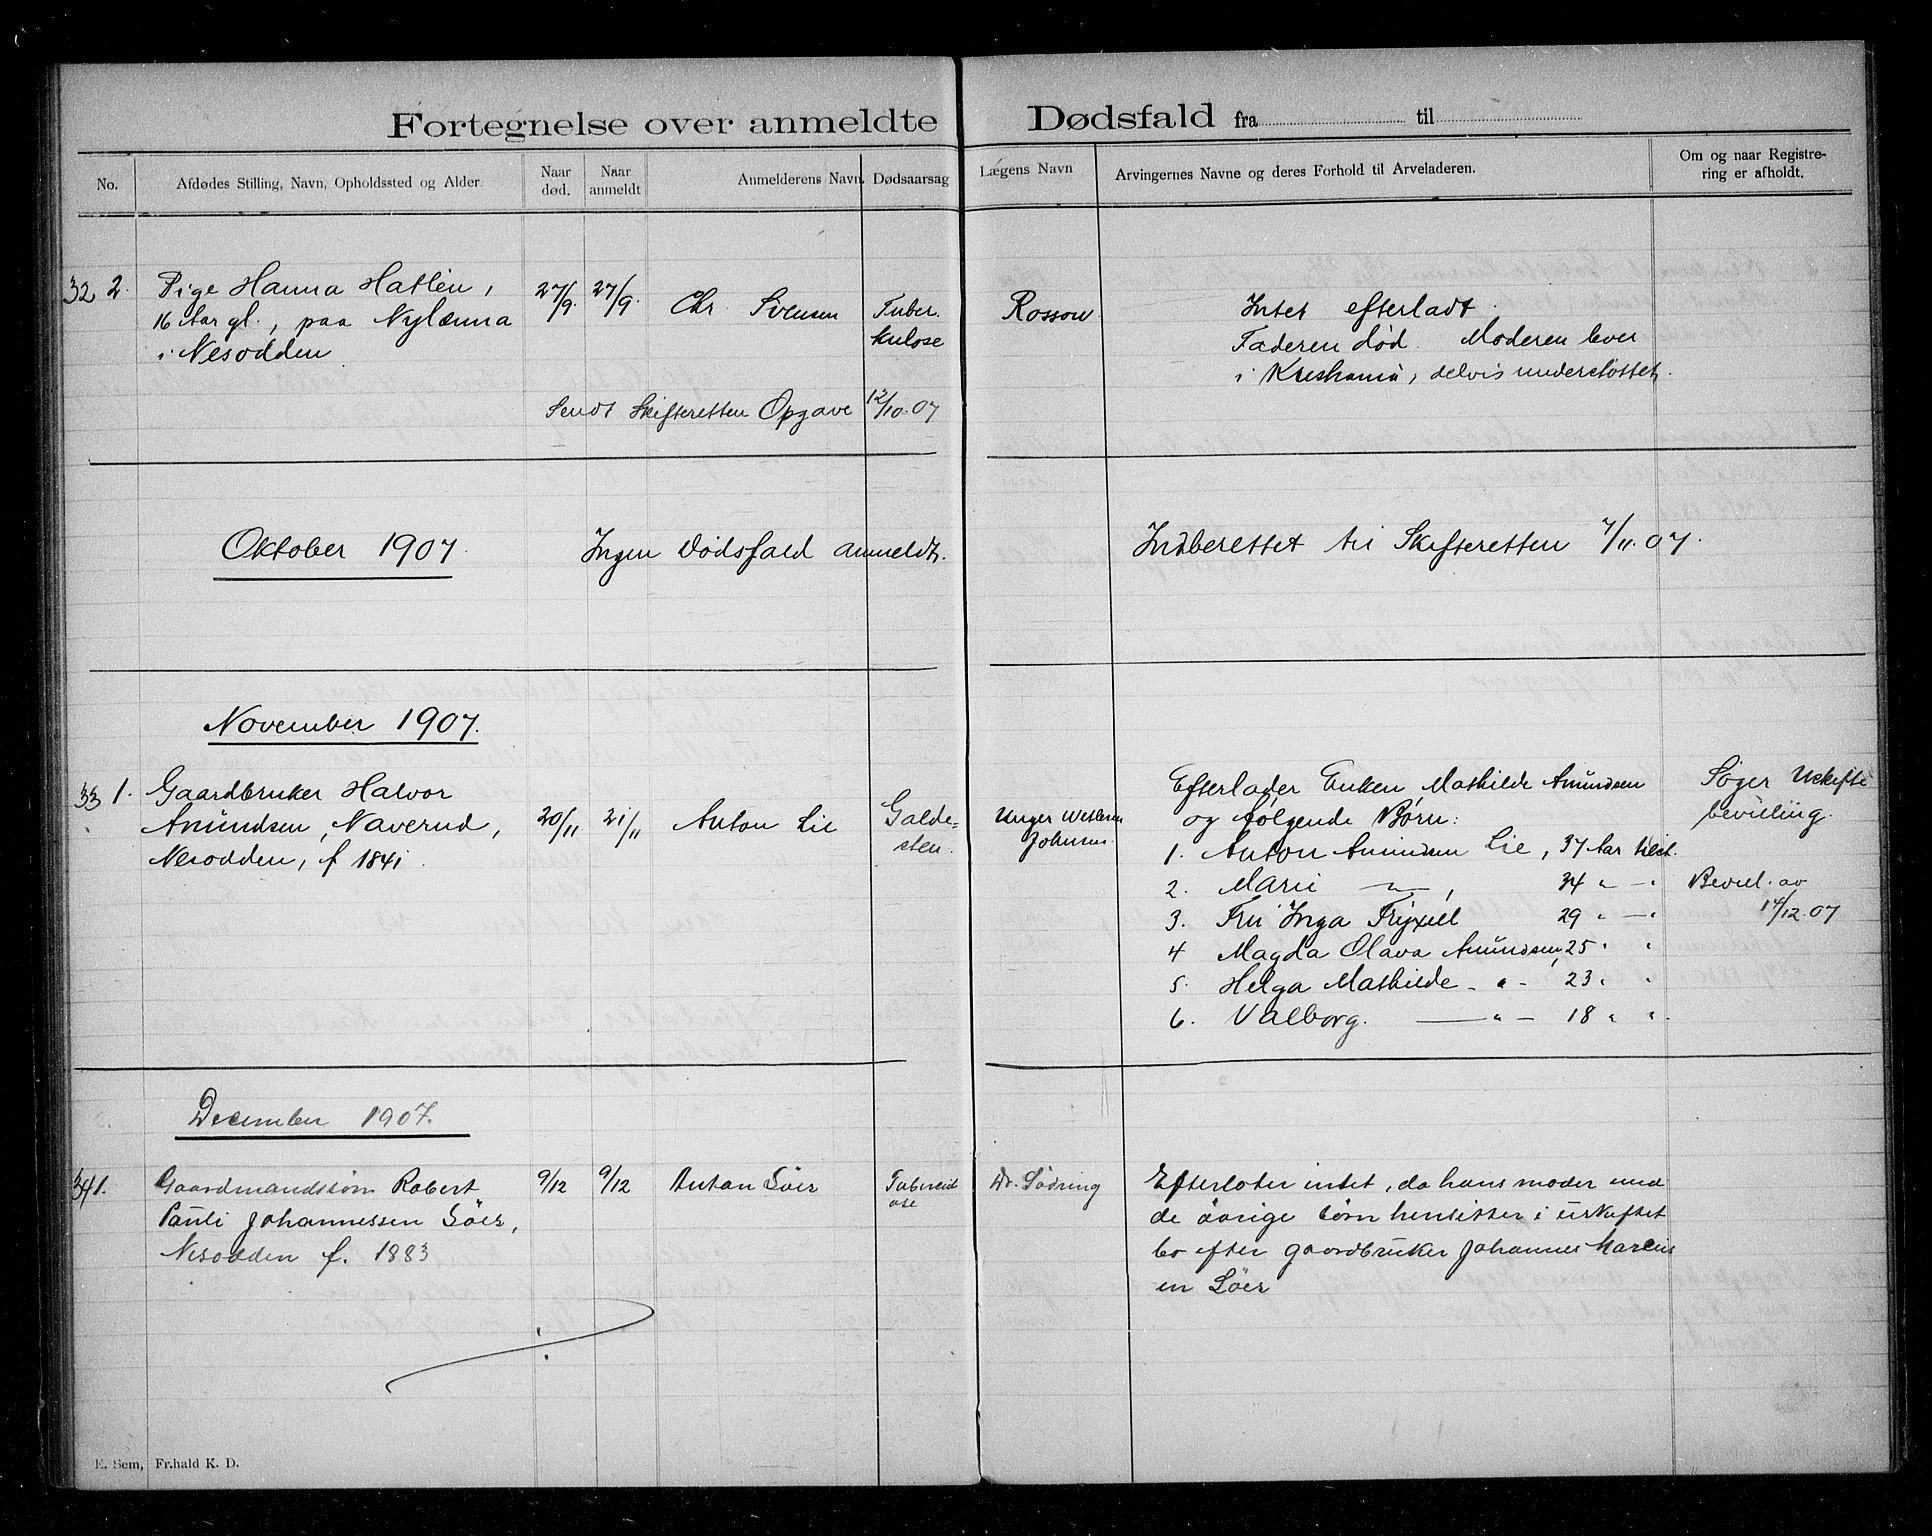 Fortegnelse over anmeldte Dødsfald fra til
No.
Afdødes Stilling, Navn, Opholdssted og Alder.
Naar
død.
Naar
anmeldt
Anmelderens Navn.
Dødsaarsag
Lægens Navn
Arvingernes Navne og deres Forhold til Arveladeren.
Om og naar Registre-
ring er afholdt.
32 2. Pige Hanna Hatlén,
16 Aar gl., paa Nylænna
i Nesodden
27/9. 27/9. Chr. Svensen
Tuber.
kulose
Rossow
Intet efterladt.
Faderen død. Moderen lever
i Kristiania, delvis understøttet.
Sendt Skifteretten Opgave 12/10.07
Oktober 1907. Ingen Dødsfald anmeldt. Indberettet til Skifteretten 7/11.07.
November 1907.
33 1. Gaardbruker Halvor
Amundsen, Naverud,
Nesodden, f 1841.
20/11 21/11 Anton Lie
Galde=
sten.
Unger Vetlesen
Johnsen.
Efterlader Enken Mathilde Amundsen
og følgende Børn:
1. Anton Amundsen Lie, 37 Aar
2. Marie —"—, 34 " — "
3. Fru Inga Fryxell 29 " — "
4 Magda Olava Amundsen, 25 " "
5. Helga Mathilde - " - 23 " "
6. Valborg. — " — 18 " ".
Søger Uskifte
bevilling.
Bevil. av
14/12.07
December 1907.
34 1. Gaardmandssøn Robert
Pauli Johannessen Söer,
Nesodden f. 1883
9/12 9/12 Anton Söer
Tuberkul
ose
Dr. Södring
Efterlater intet, da hans moder med
de övrige börn hensitter i uskiftet
bo efter gaardbruker Johannes Marcus
en Söer
E. Sem, Fr.hald K. D.